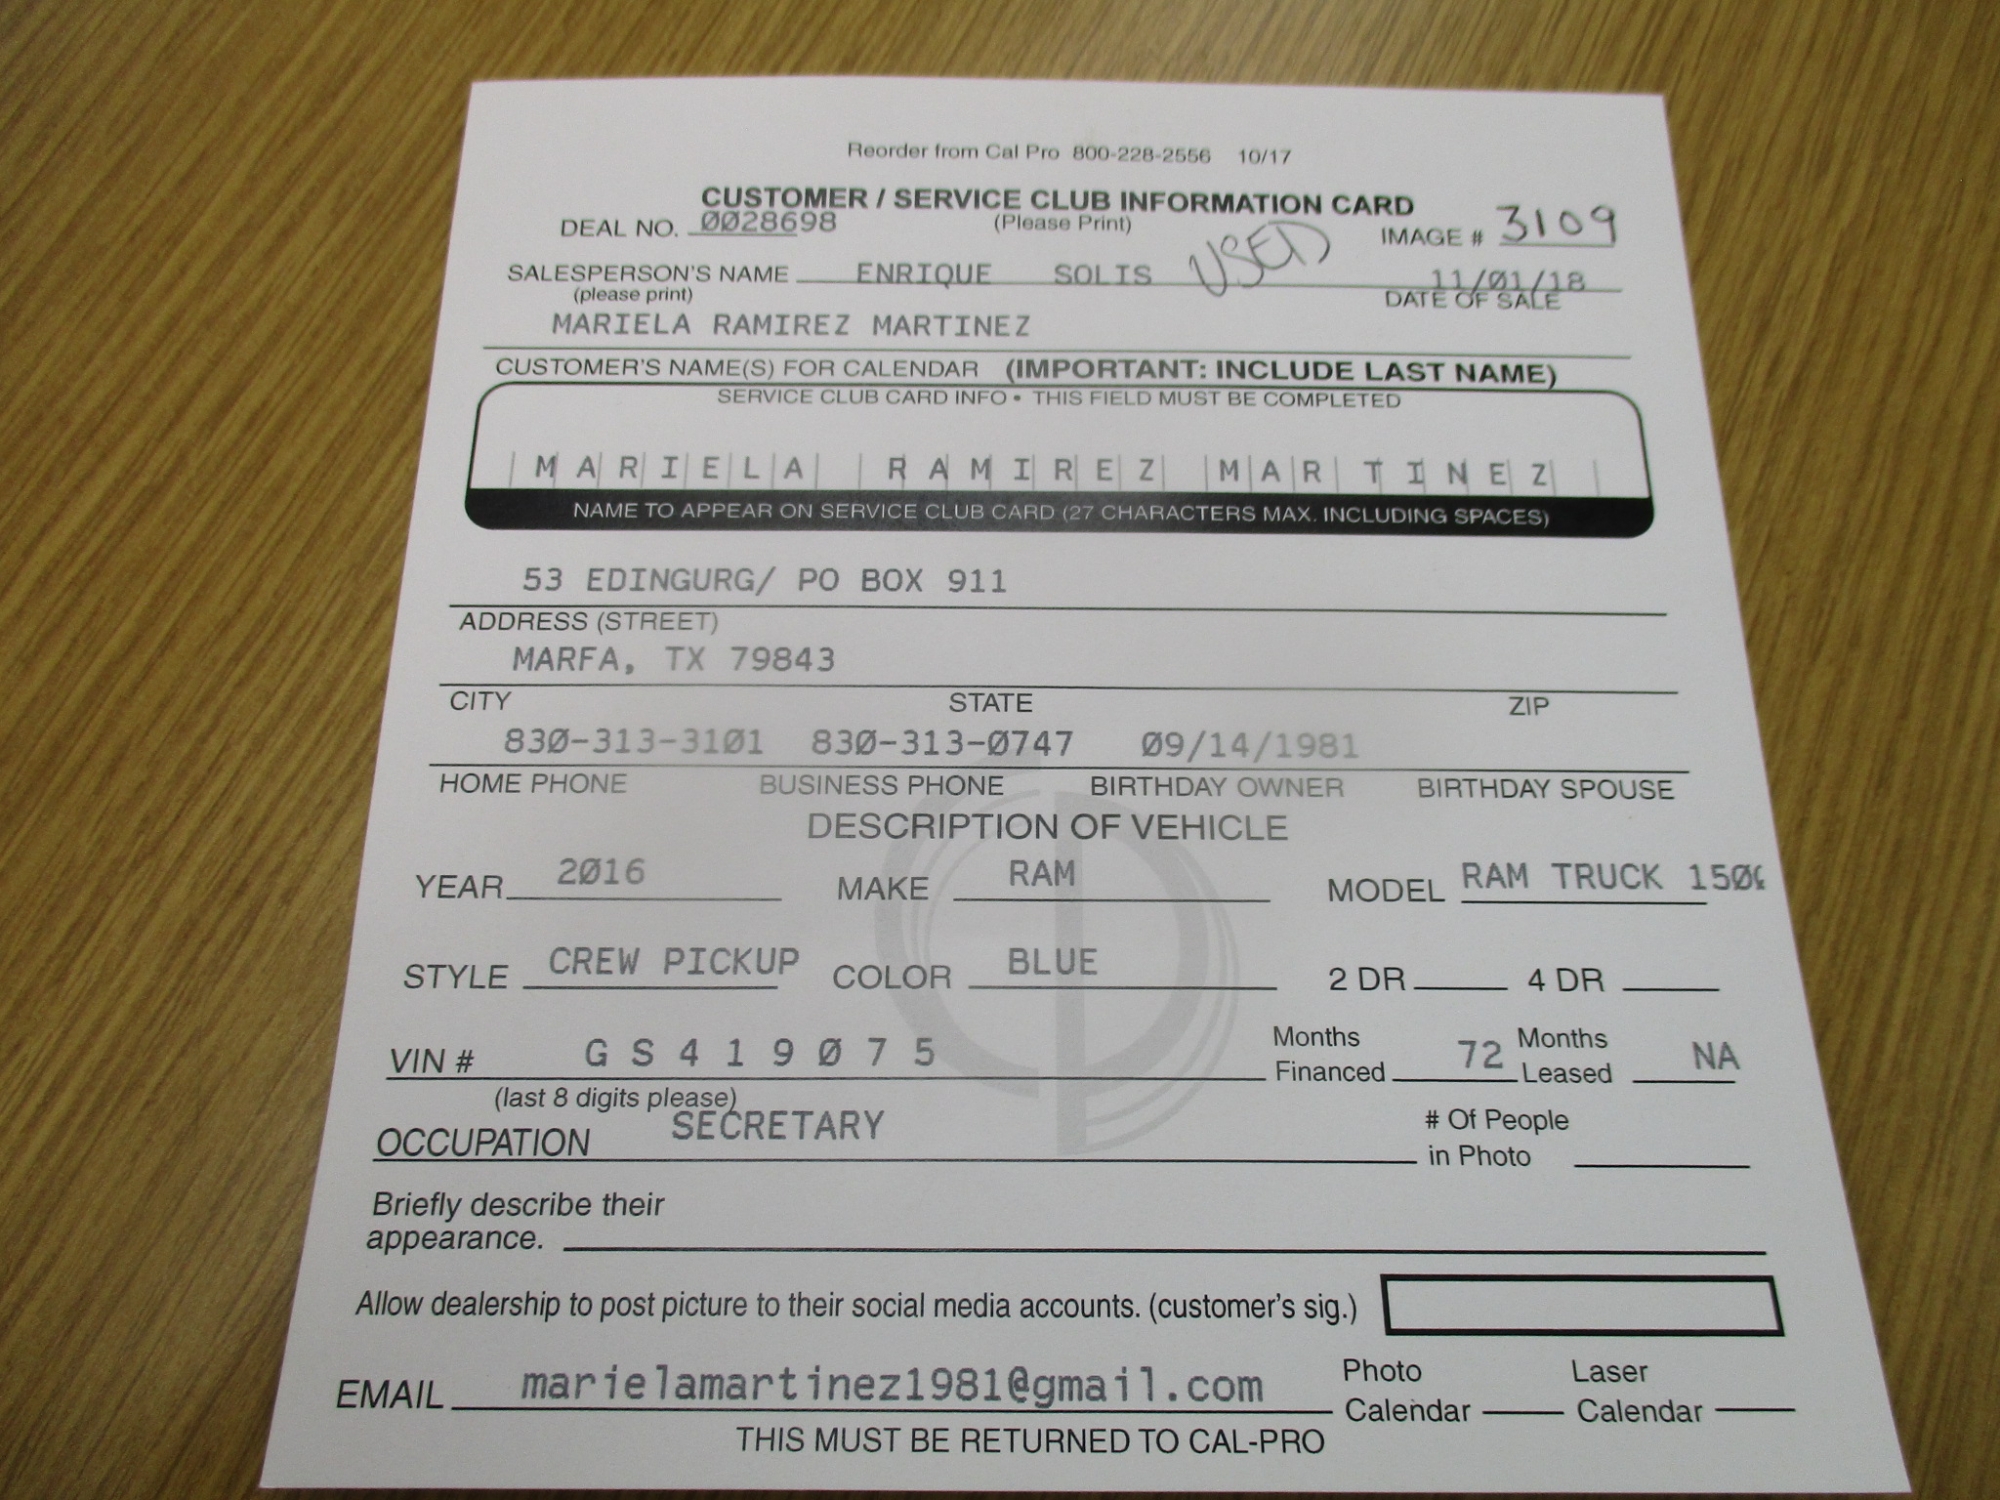 Reorder from Cal Pro 800-228-2556 10/17
CUSTOMER / SERVICE CLUB INFORMATION CARD
DEAL NO. 0028698 (Please Print) IMAGE # 3109
SALESPERSON'S NAME ENRIQUE SOLIS USED 11/01/18
(please print) DATE OF SALE
MARIELA RAMIREZ MARTINEZ
CUSTOMER'S NAME(S) FOR CALENDAR (IMPORTANT: INCLUDE LAST NAME)
SERVICE CLUB CARD INFO • THIS FIELD MUST BE COMPLETED
MARIELA RAMIREZ MARTINEZ
NAME TO APPEAR ON SERVICE CLUB CARD (27 CHARACTERS MAX. INCLUDING SPACES)
53 EDINGURG/ PO BOX 911
ADDRESS (STREET)
MARFA, TX 79843
CITY STATE ZIP
830-313-3101 830-313-0747 09/14/1981
HOME PHONE BUSINESS PHONE BIRTHDAY OWNER BIRTHDAY SPOUSE
DESCRIPTION OF VEHICLE
YEAR 2016 MAKE RAM MODEL RAM TRUCK
STYLE CREW PICKUP COLOR BLUE 2 DR 4 DR
VIN # GS419075 Months Financed 72 Months Leased NA
(last 8 digits please)
OCCUPATION SECRETARY # Of People in Photo
Briefly describe their
appearance.
Allow dealership to post picture to their social media accounts. (customer's sig.)
EMAIL marielamartinez1981@gmail.com Photo Calendar Laser Calendar
THIS MUST BE RETURNED TO CAL-PRO